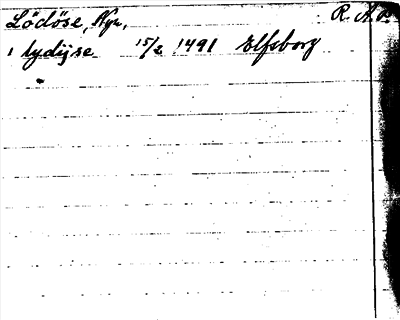 Lödöse, Nya, R. A. P.
i lydijse 15/2 1491 Elfsborg